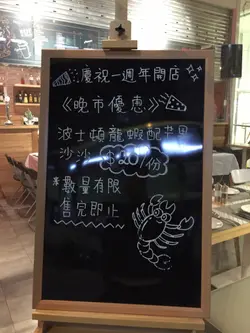 慶祝一週年開店
《晚市優惠》
波士頓龍蝦配芒果
沙沙 $20/份
數量有限
售完即止